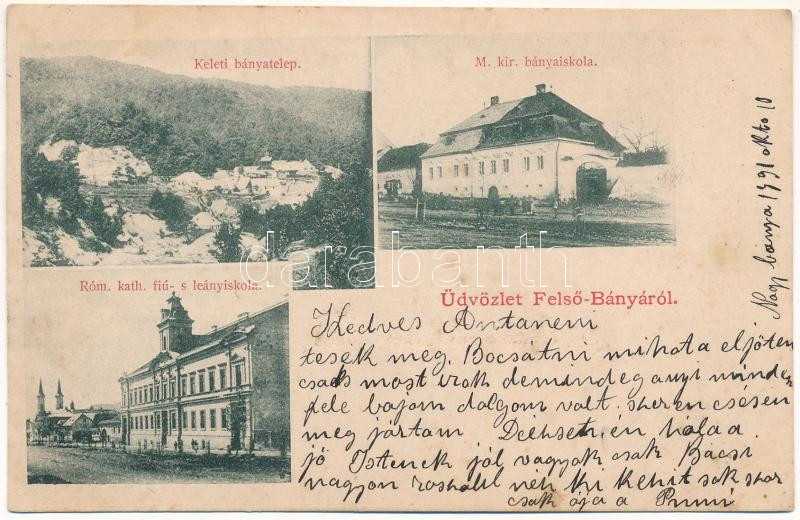 Keleti bányatelep.
M. kir. bányaiskola.
Róm. kath. fiú- s leányiskola.
Üdvözlet Felső-Bányáról.
darabanth
Nagy bánya okto 10
Kedves Antaneni
tesék meg. Bocsátni mihota eljöten
csak most irok de mindeg anyi minden
fele bajom dolgom valt. szeren csésen
meg jártam én hála a
jó Istenek jól vagyok csak Bácsi
nagyon ki sok szor
csak a